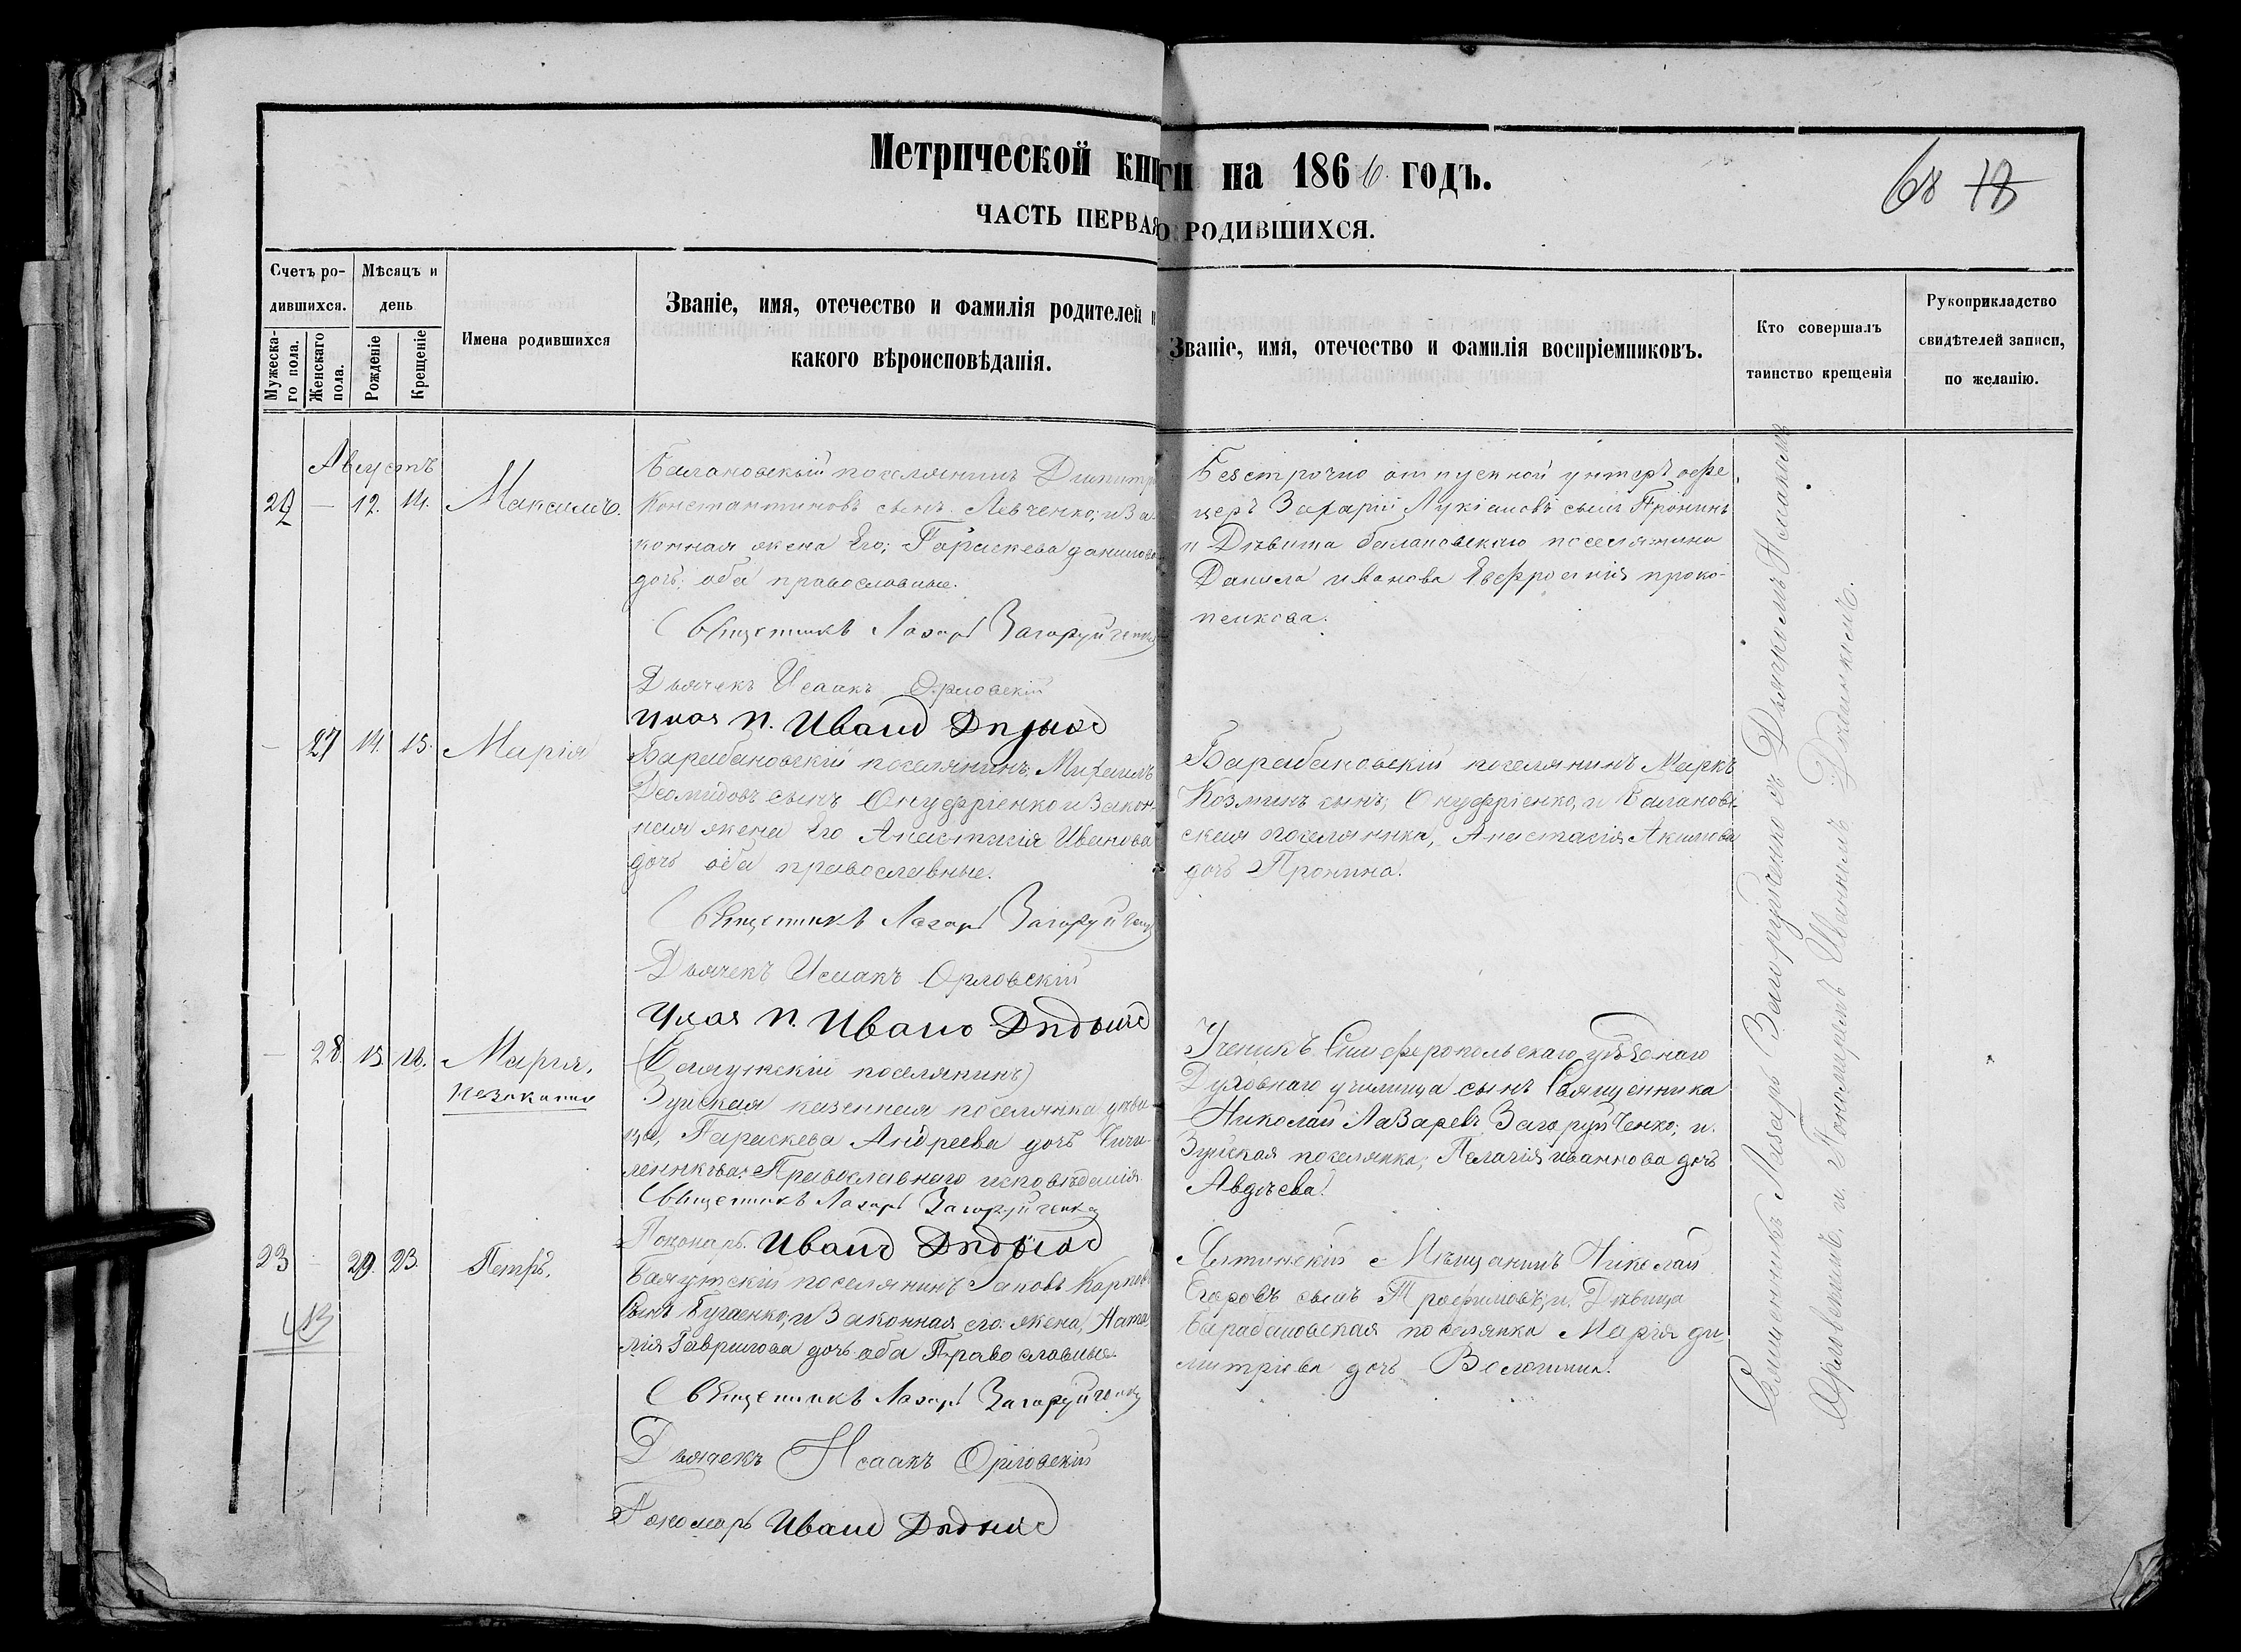 Метрической книги на 1866 годъ.
68 18
ЧАСТЬ ПЕРВАЯ О РОДИВШИХСЯ.
Счетъ ро-
дившихся.
Мужеска-
го пола.
Женскаго
пола.
Мѣсяцъ и
день
Рожденіе
Крещеніе
Имена родившихся
Званіе, имя, отечество и фамилія родителей и
какого вѣроисповѣданія.
Званіе, имя, отечество и фамилія воспріемниковъ.
Кто совершалъ
таинство крещенія
Рукоприкладство
свидѣтелей записи,
по желанію.
Августъ
22 — 12. 14. Максимъ.
Балановскій поселянинъ Димитр
Константиновъ сынъ Левченко; и За-
конная жена Его; Параскева данилова
дочь: оба православные.
Священникъ Лазарь Загоруйченко
Дьячекъ Исаакъ Орловскій
И. Иванъ
Безсрочно отпускной унтеръ офе
церъ Захарій Лукіановъ сынъ Пронинъ
и Дѣвица балановскаго поселянина
Данила иванова Евфросинія проко-
пенкова.
— 27 14. 15. Марія
Барабановскій поселянинъ, Михаилъ
Деомидовъ сынъ Онуфріенко и Закон-
ная жена Его Анастасія Иванова
дочь оба православные.
Священникъ Лазарь Загоруйченко
Дьячекъ Исаакъ Орловскій
И. Иванъ
Барабановскій поселянинъ Маркъ
Козминъ сынъ; Онуфріенко, и Баланов
ская поселянка, Анастасія Акимова
дочь Пронина.
— 28. 15. 16. Марія,
незаконная
поселянинъ)
Зуйская казенная поселянка дѣви-
ца, Параскева Андреева дочь
Православнаго исповѣданія
Священникъ Лазарь Загоруйченко
Пономарь Иванъ
Ученикъ Симферопольскаго уѣзднаго
Духовнаго училища сынъ Священника
Николай Лазаревъ Загоруйченко; и
Зуйская поселянка, Пелагія иваннова дочь
Авдѣева.
23 — 20. 23. Петръ.
поселянинъ Іаковъ Карпов
сынъ Бугаенко, и Законная его жена, Ната
лія Гаврилова дочь оба Православные.
Священникъ Лазарь Загоруйченко
Дьячекъ Исаакъ Орловскій
Пономарь Иванъ
Ялтинскій Мѣщанинъ Николай
Егоровъ сынъ Трофимовъ; и. Дѣвица
Барабановская поселянка Марія ди-
митріева дочь
Священникъ Лазарь Загоруйченко съ Дьячкомъ Исаакомъ
Орловскимъ и Пономаремъ Иваномъ